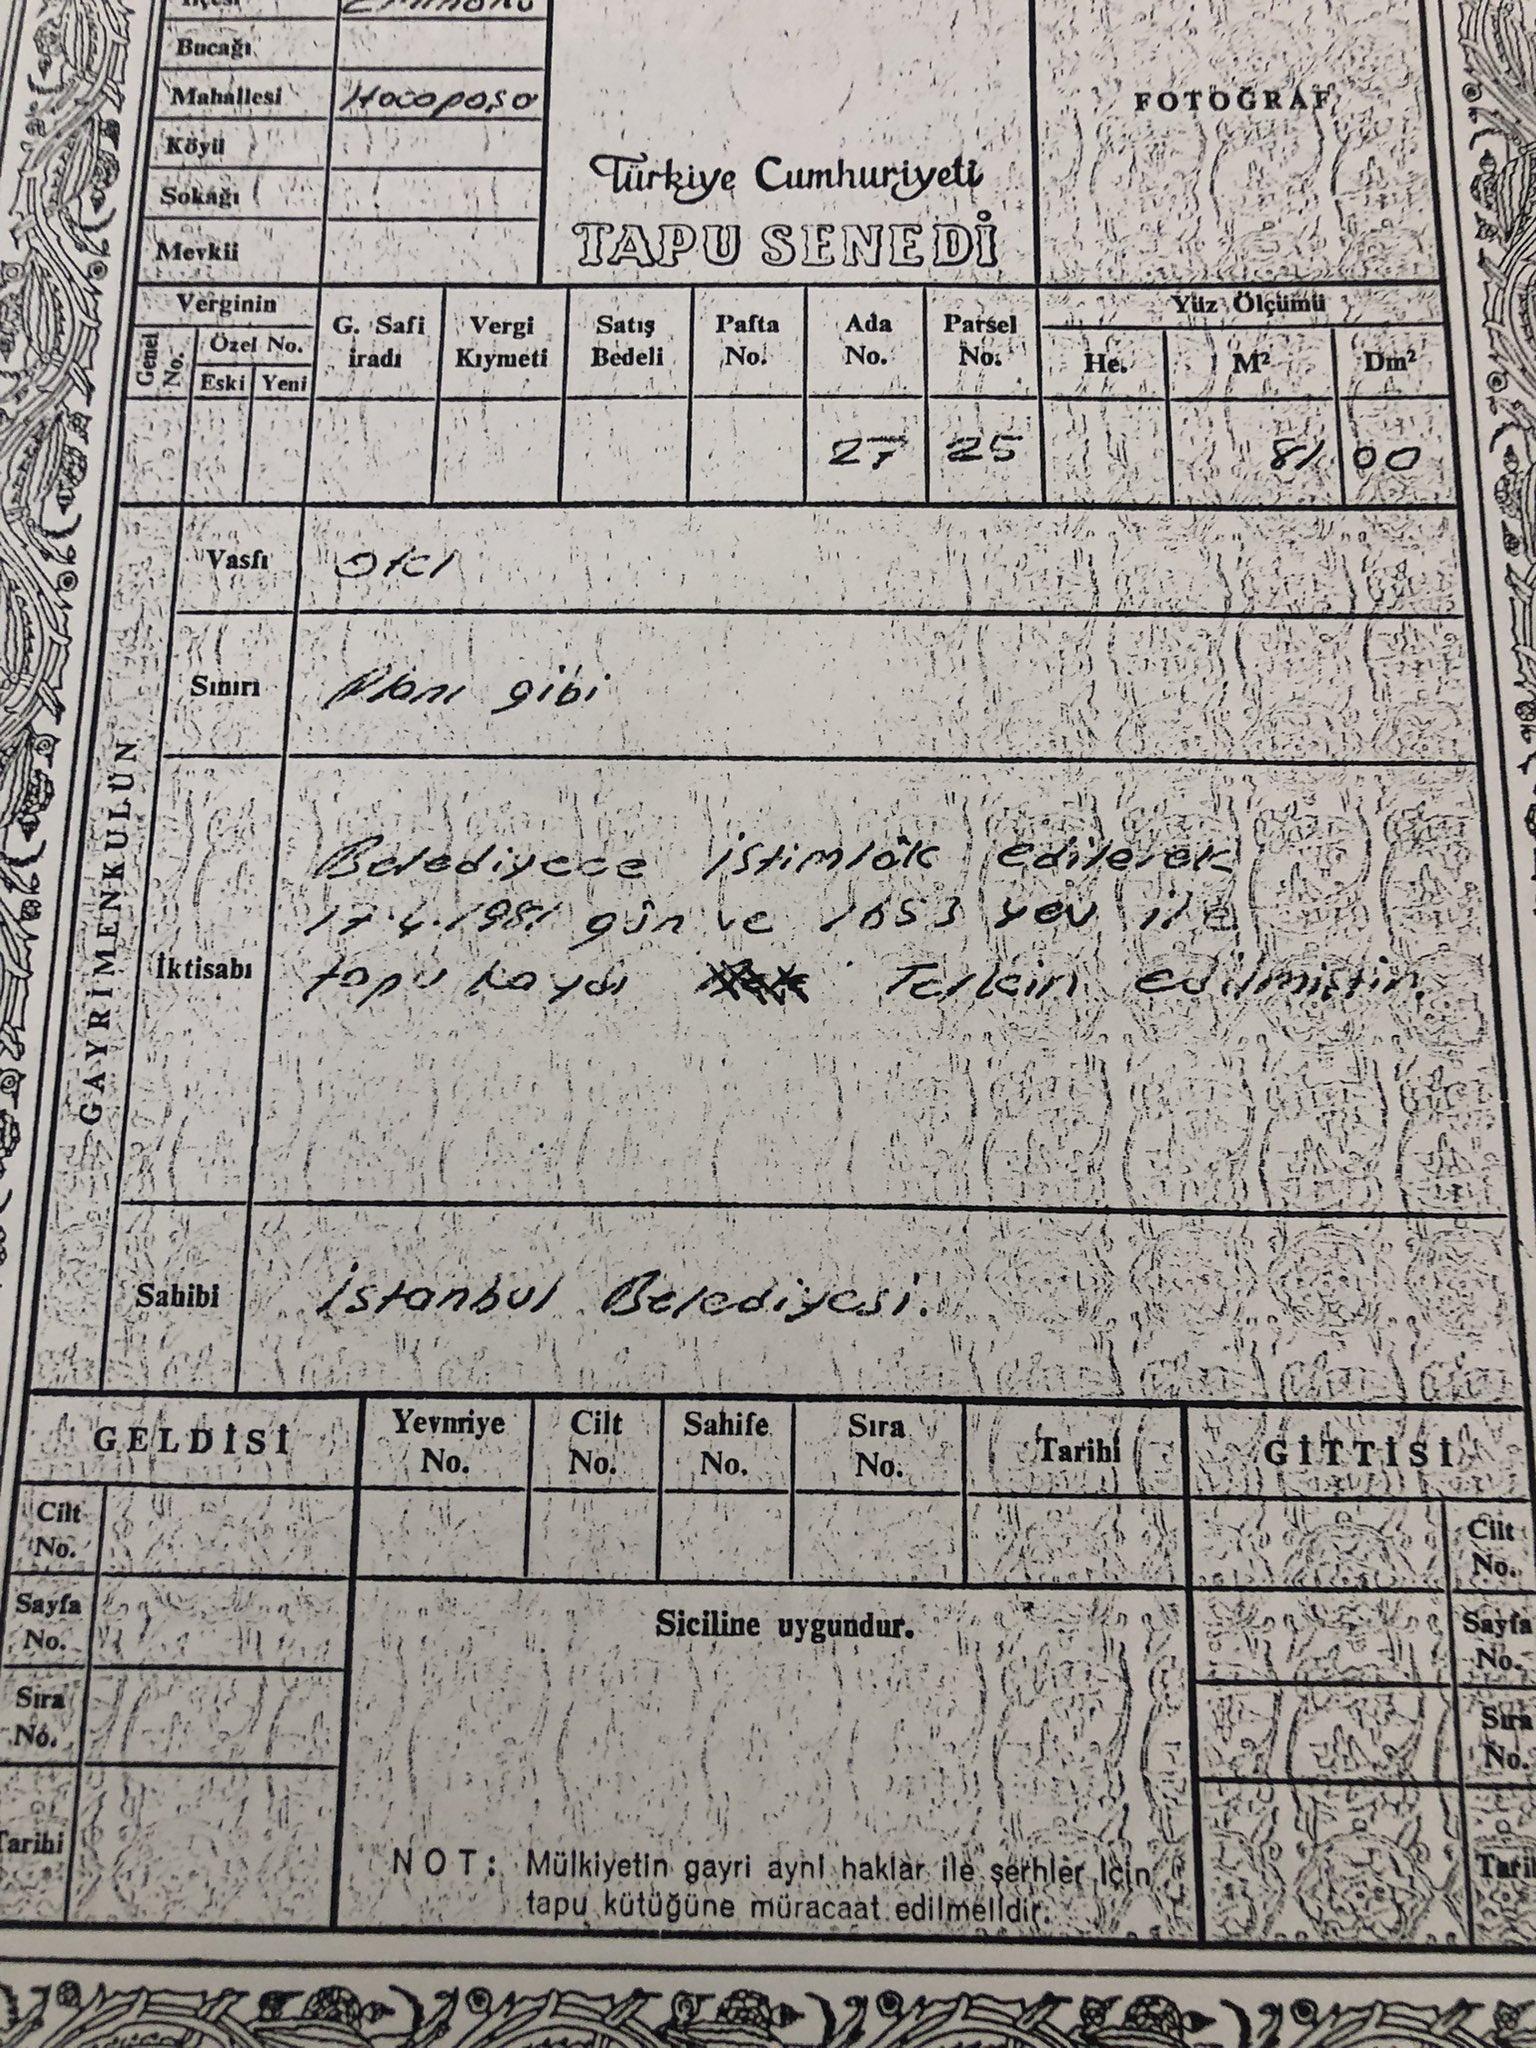 İlçesi Eminönü
Bucağı
Mahallesi Hocapaşa
Köyü
Sokağı
Mevkii
Türkiye Cumhuriyeti
TAPU SENEDİ
FOTOĞRAF
Verginin
Genel No.
Özel No.
Eski Yeni
G. Safi iradı
Vergi Kıymeti
Satış Bedeli
Pafta No.
Ada No.
Parsel No.
Yüz Ölçümü
He. M² Dm²
27 25 81 00
GAYRİMENKULÜN
Vasfı Otel
Sınırı Planı gibi
İktisabı
Belediyece İstimlâk edilerek
17.4.1981 gün ve 1653 yev ile
tapu kaydı Terkin edilmiştir.
Sahibi İstanbul Belediyesi.
GELDİSİ
Yevmiye No.
Cilt No.
Sahife No.
Sıra No.
Tarihi
GİTTİSİ
Cilt No.
Sayfa No.
Sıra No.
Tarihi
Siciline uygundur.
NOT: Mülkiyetin gayri ayni haklar ile şerhler için
tapu kütüğüne müracaat edilmelidir.
Cilt No.
Sayfa No.
Sıra No.
Tari